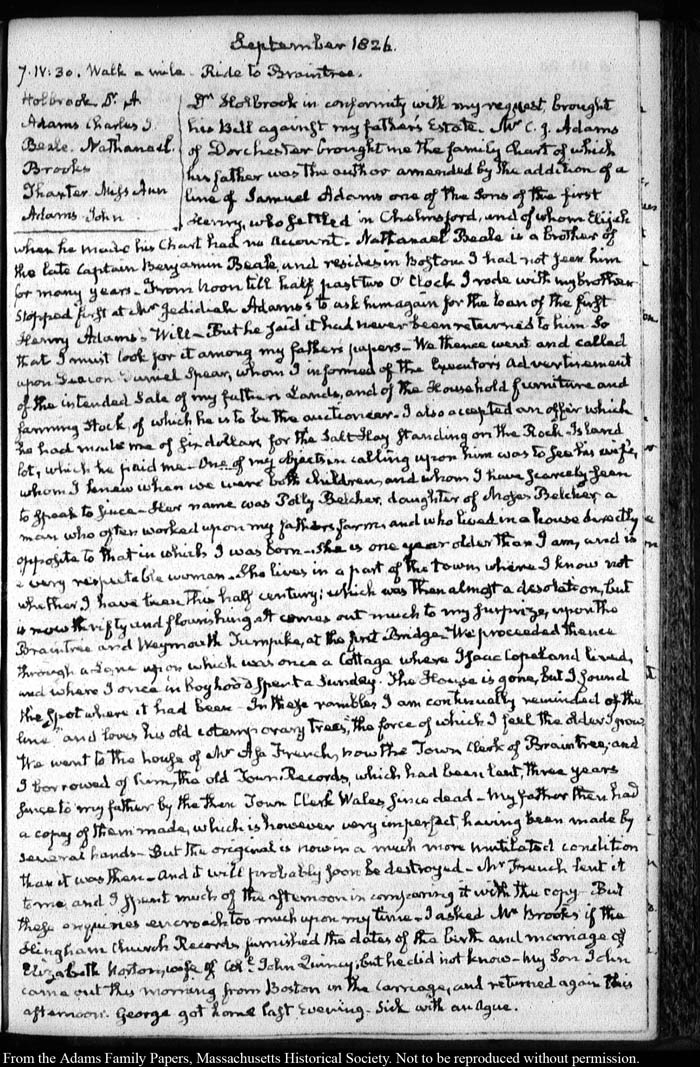 September 1826.
7. IV: 30. Walk a mile. Ride to Braintree.
Holbrook. Dr. A
Adams Charles J.
Beale. Nathanael.
Brooks
Thaxter Miss Ann
Adams. John
Dr. Holbrook in conformity with my request, brought
his Bill against my father's Estate. Mr. C. J. Adams
of Dorchester brought me the family Chart of which
his father was the author amended by the addition of a
line of Samuel Adams one of the Sons of the first
Henry, who settled in Chelmsford, and of whom Elijah
when he made his Chart had no account. Nathanael Beale is a brother of
the late Captain Benjamin Beale, and resides in Boston. I had not seen him
for many years. From Noon till half past two O'Clock I rode with my brother
Stopped first at Mr. Jedidiah Adams's to ask him again for the loan of the first
Henry Adams's Will. But he said it had never been returned to him. So
that I must look for it among my father's papers. We thence went and called
upon Deacon Spear, whom I informed of the Executor's Advertisement
of the intended Sale of my father's Lands, and of the Household furniture and
farming Stock, of which he is to be the auctioneer. I also accepted an offer which
he had made me of six dollars for the Salt Hay standing on the Rock-Island
lot, which he paid me. One of my objects in calling upon him was to see his wife,
whom I knew when we were both children, and whom I have scarcely seen
to speak to since. Her name was Polly Belcher, daughter of Moses Belcher, a
man who often worked upon my father's farm, and who lived in a house directly
opposite to that in which I was born. She is one year older than I am, and is
a very respectable woman. She lives in a part of the town where I know not
whether I have been this half century; which was then almost a desolation, but
is now thrifty and flourishing. It comes out much to my surprize, upon the
Braintree and Weymouth Turnpike, at the first Bridge. We proceeded thence
through a Lane upon which was once a Cottage where Isaac Copeland lived,
and where I once in boyhood spent a Sunday. The House is gone, but I found
the spot where it had been. In these rambles I am continually reminded of the
line "and loves his old cotemporary trees," the force of which I feel the older I grow.
We went to the house of Mr. Asa French, now the Town Clerk of Braintree, and
I borrowed of him, the old Town Records, which had been lent, three years
since to my father by the then Town Clerk Wales, since dead. My father then had
a copy of them made, which is however very imperfect, having been made by
several hands. But the original is now in a much more mutilated condition
than it was then. And it will probably soon be destroyed. Mr. French lent it
to me and I spent much of the afternoon in comparing it with the copy. But
these enquiries encroach too much upon my time. I asked Mr. Brooks if the
Hingham Church Records furnished the dates of the birth and marriage of
Elizabeth Norton, wife of Col. John Quincy, but he did not know. My Son John
came out this morning from Boston in the Carriage, and returned again this
afternoon. George got home last Evening. Sick with an ague.
From the Adams Family Papers, Massachusetts Historical Society. Not to be reproduced without permission.